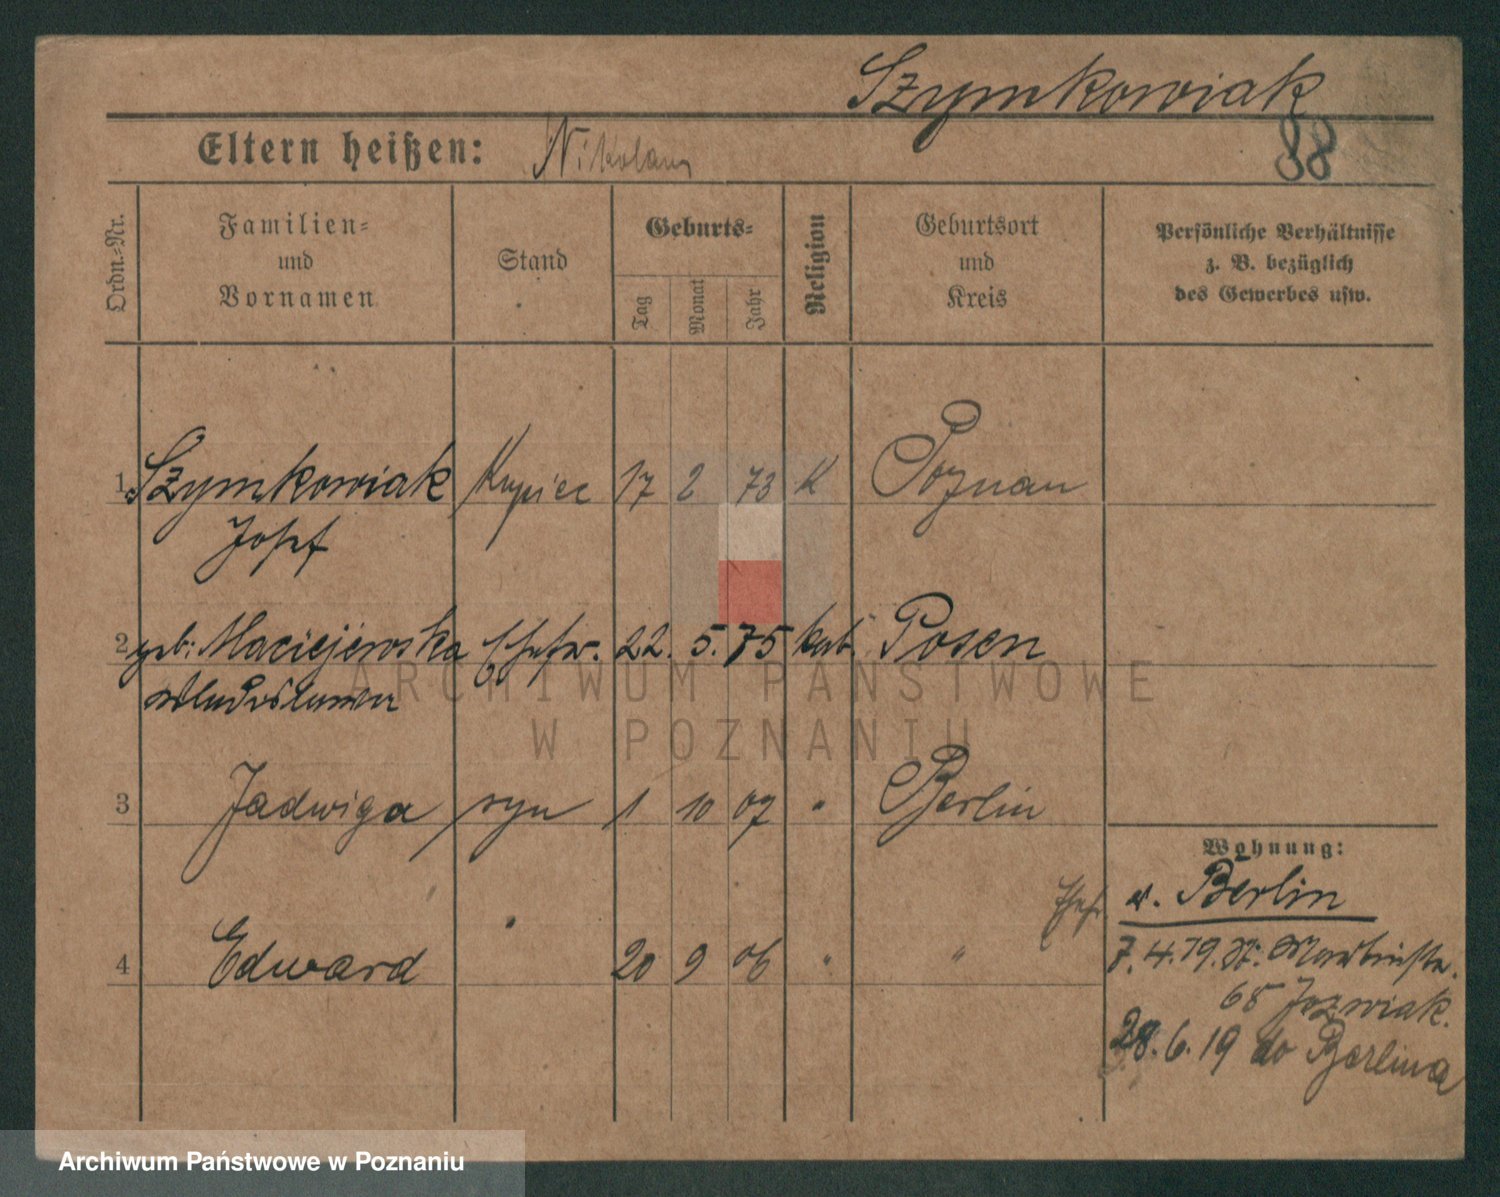 Szymkowiak
Eltern heißen: Nikolaus
88
Ordn.=Nr.
Familien=
und
Vornamen
Stand
Geburts=
Tag
Monat
Jahr
Religion
Geburtsort
und
Kreis
Persönliche Verhältnisse
z. B. bezüglich
des Gewerbes usw.
1 Szymkowiak Kupiec 17 2 73 K Poznan
Josef
2 geb. Maciejewska Ehefr. 22. 5. 75 kath. Posen
Wladislawa
3 Jadwiga syn 1 10 07 " Berlin
4 Edward " 20 9 06 " "
Wohnung:
v. Berlin
7. 4. 19. St. Martinstr.
65 Jozwiak.
28. 6. 19 do Berlina
ARCHIWUM PAŃSTWOWE
W POZNANIU
Archiwum Państwowe w Poznaniu